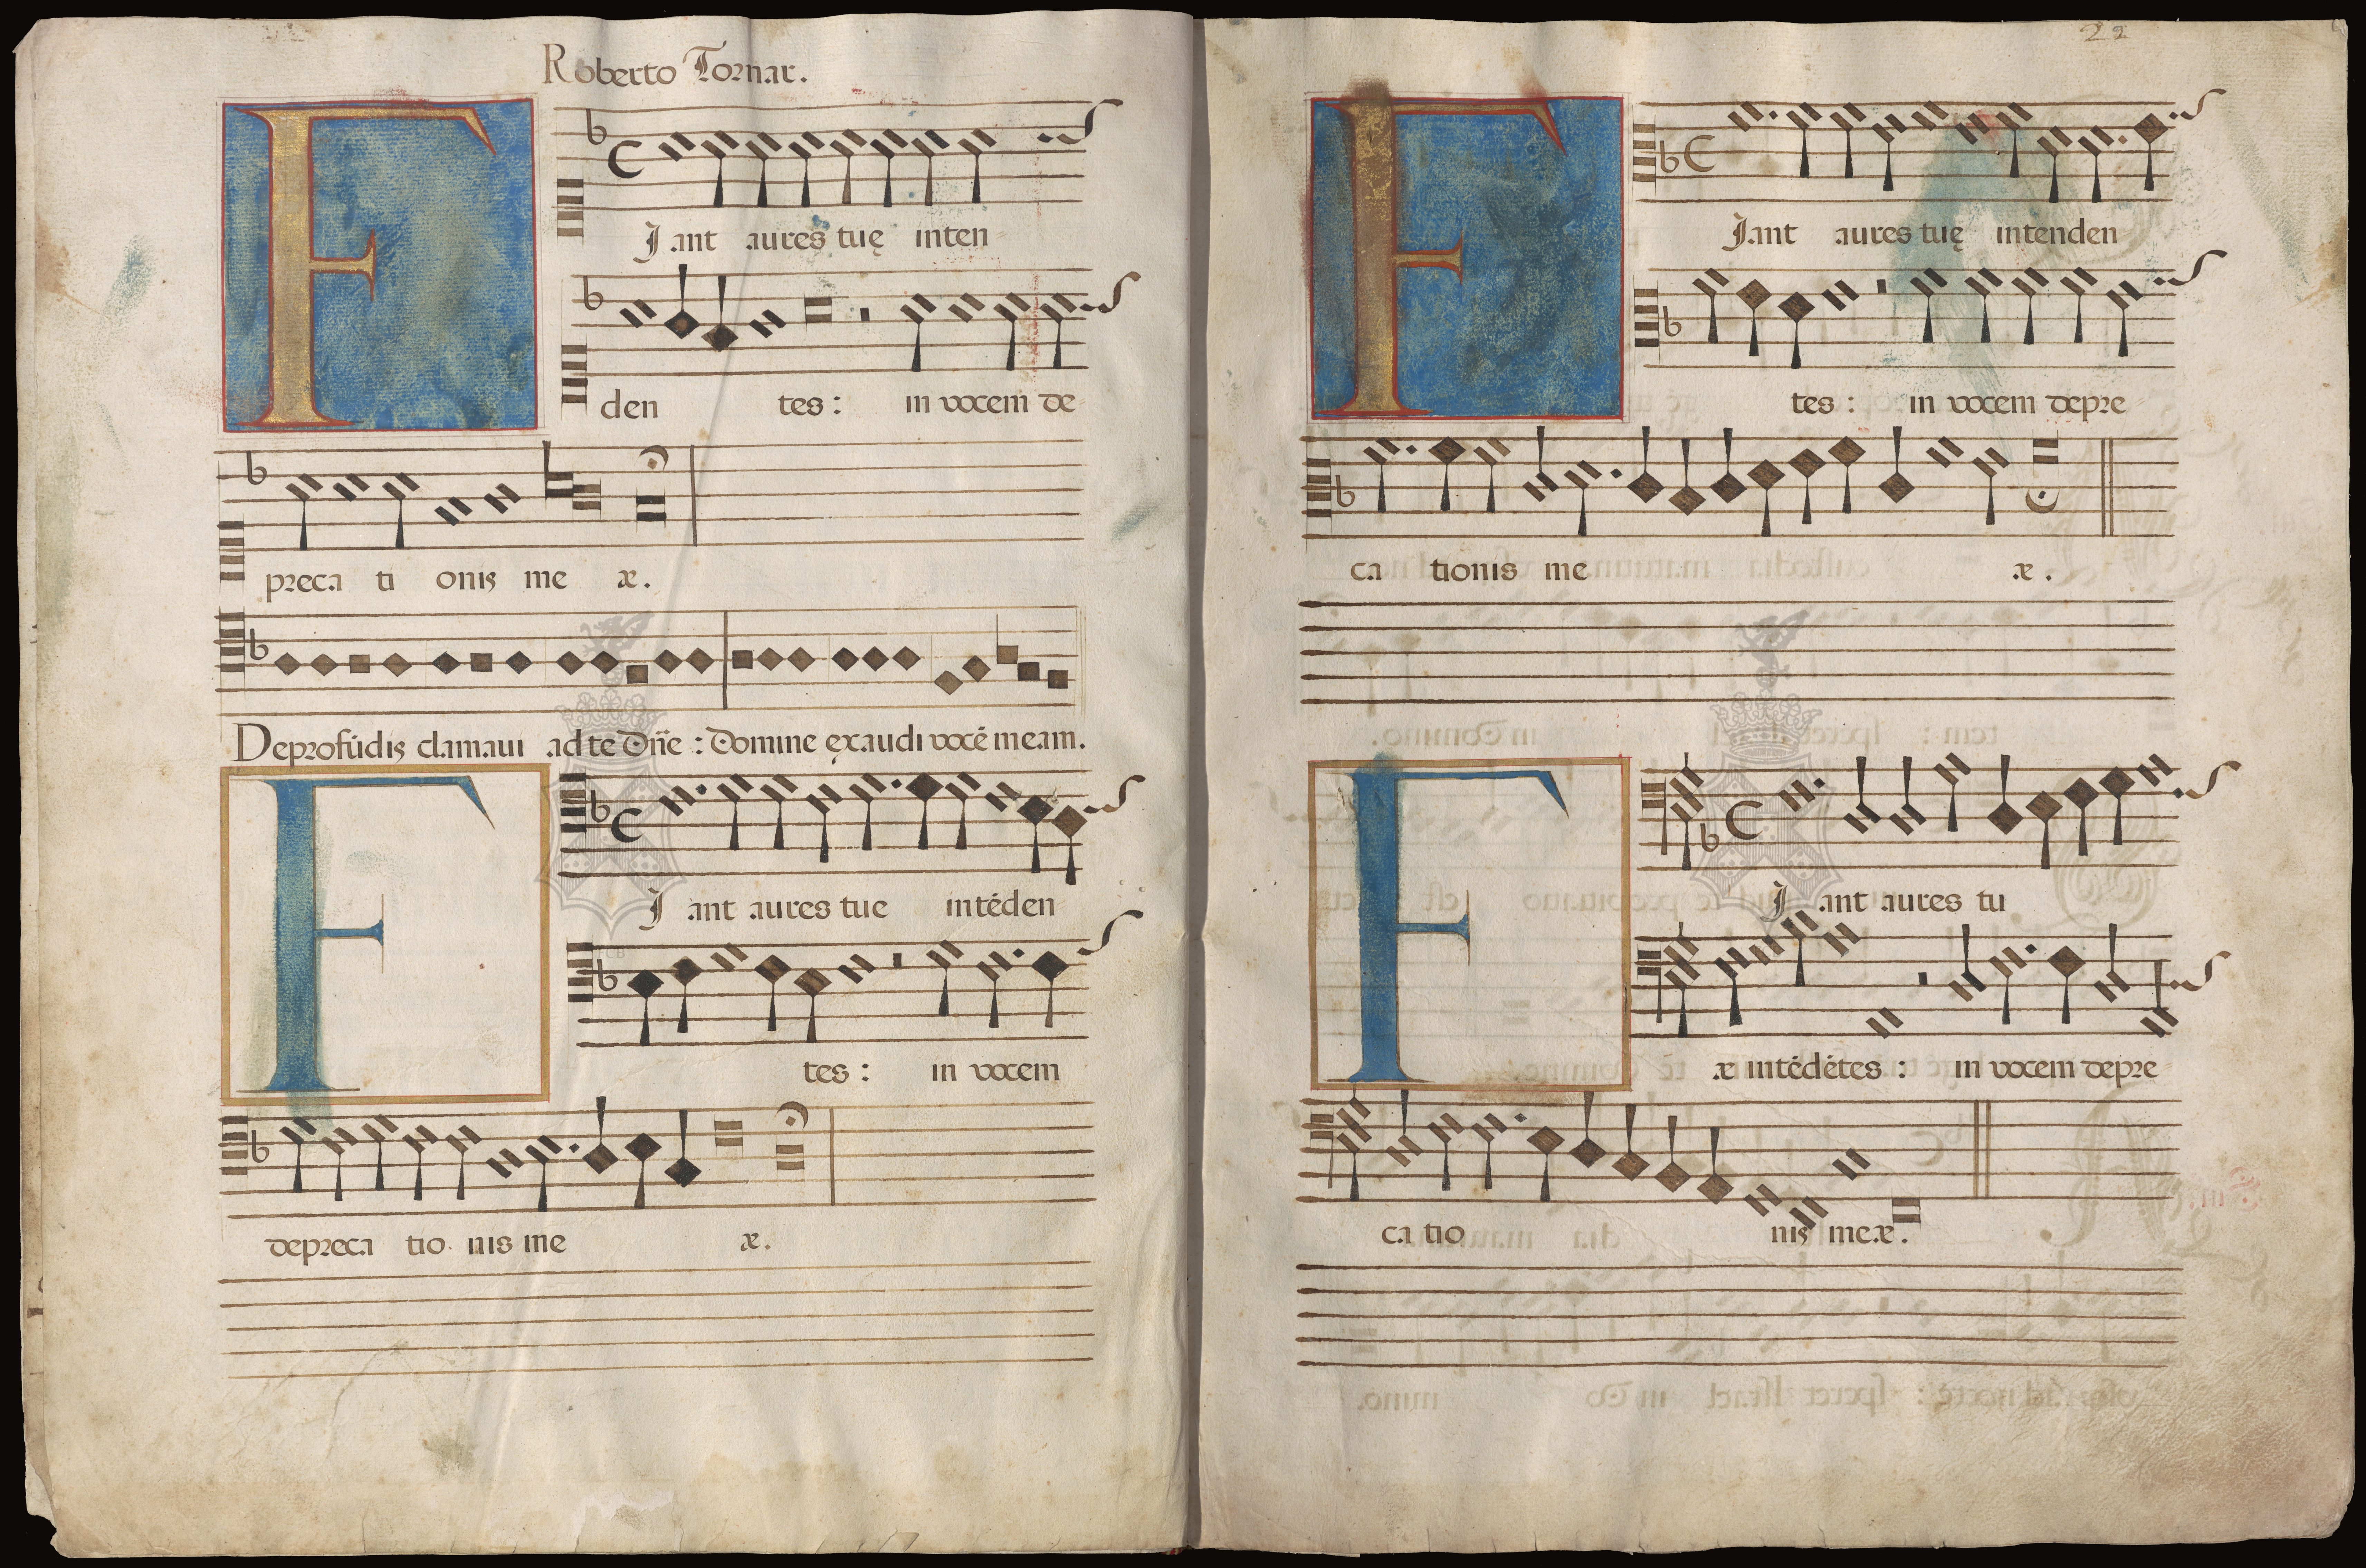 Roberto Tornar.
F Jant aures tuę inten
den tes: in vocem de
preca ti onis me æ.
Deprofũdis clamaui ad te Dñe: Domine ęxaudi vocẽ meam.
F Jant aures tue intẽden
tes: in vocem
depreca tio nis me æ.
22
F Jant aures tuę intenden
tes: in vocem depre
ca tionis me æ.
F Jant aures tu
æ intẽdẽtes: in vocem depre
ca tio nis meæ.